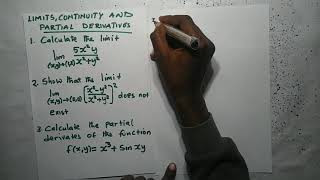 LIMITS, CONTINUITY AND
PARTIAL DERIVATIVES
1. Calculate the limit
lim (x,y)→(1,2) 5x²y / x²+y²
2. Show that the limit
lim (x,y)→(0,0) [x²-y² / x²+y²]² does not
exist
3. Calculate the partial
derivates of the function
f(x,y) = x³ + Sin xy